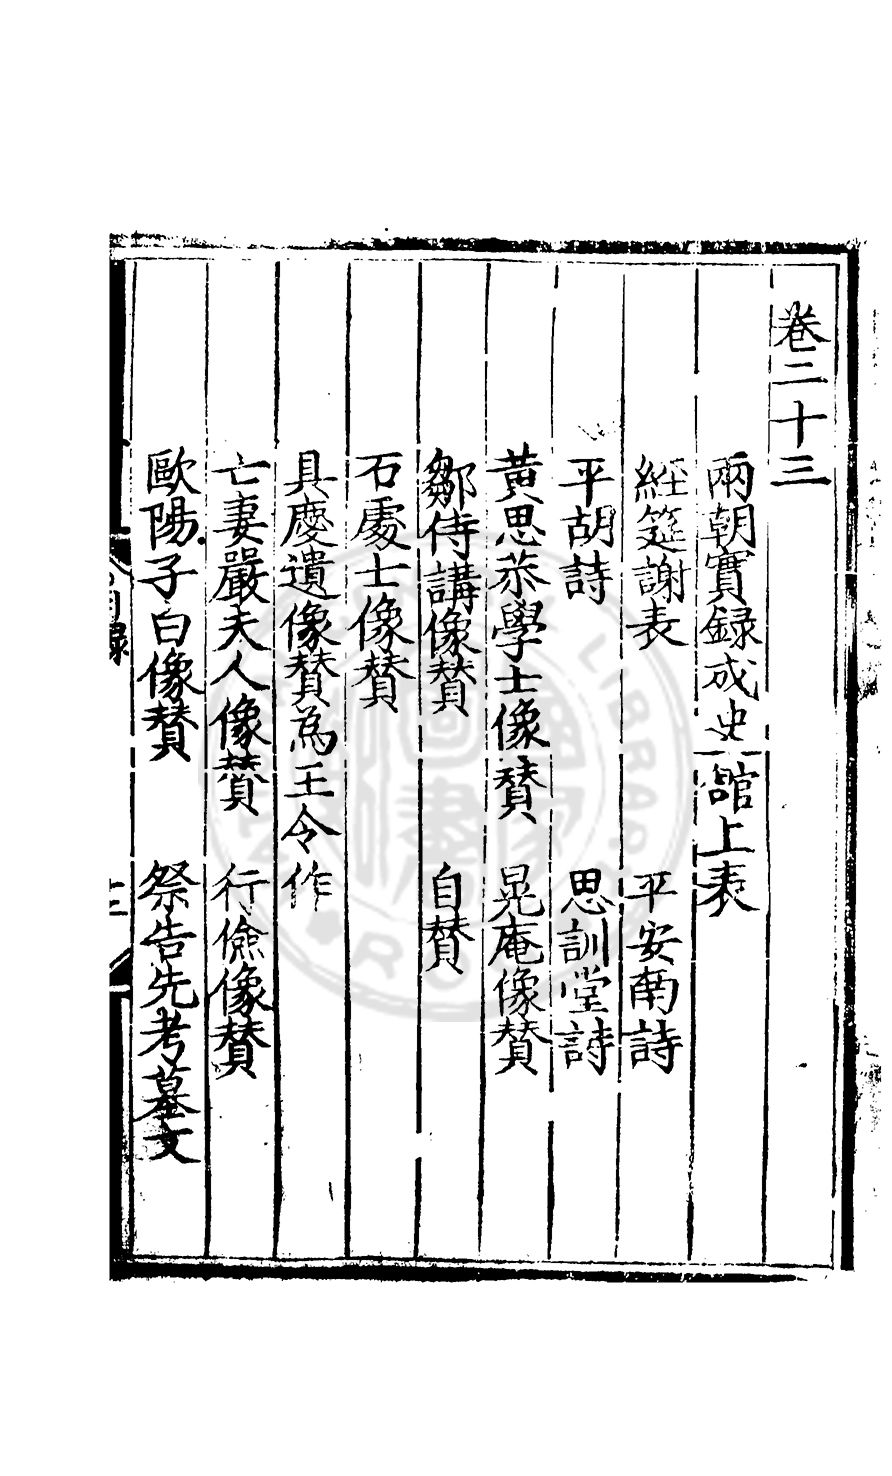 卷二十三
兩朝實録成史館上表
經筵謝表 平安南詩
平胡詩 思訓堂詩
黃思恭學士像賛 晃庵像賛
鄒侍講像賛 自賛
石處士像賛
具慶遺像賛為王令作
亡妻嚴夫人像賛 行儉像賛
歐陽子白像賛 祭告先考墓文
目録